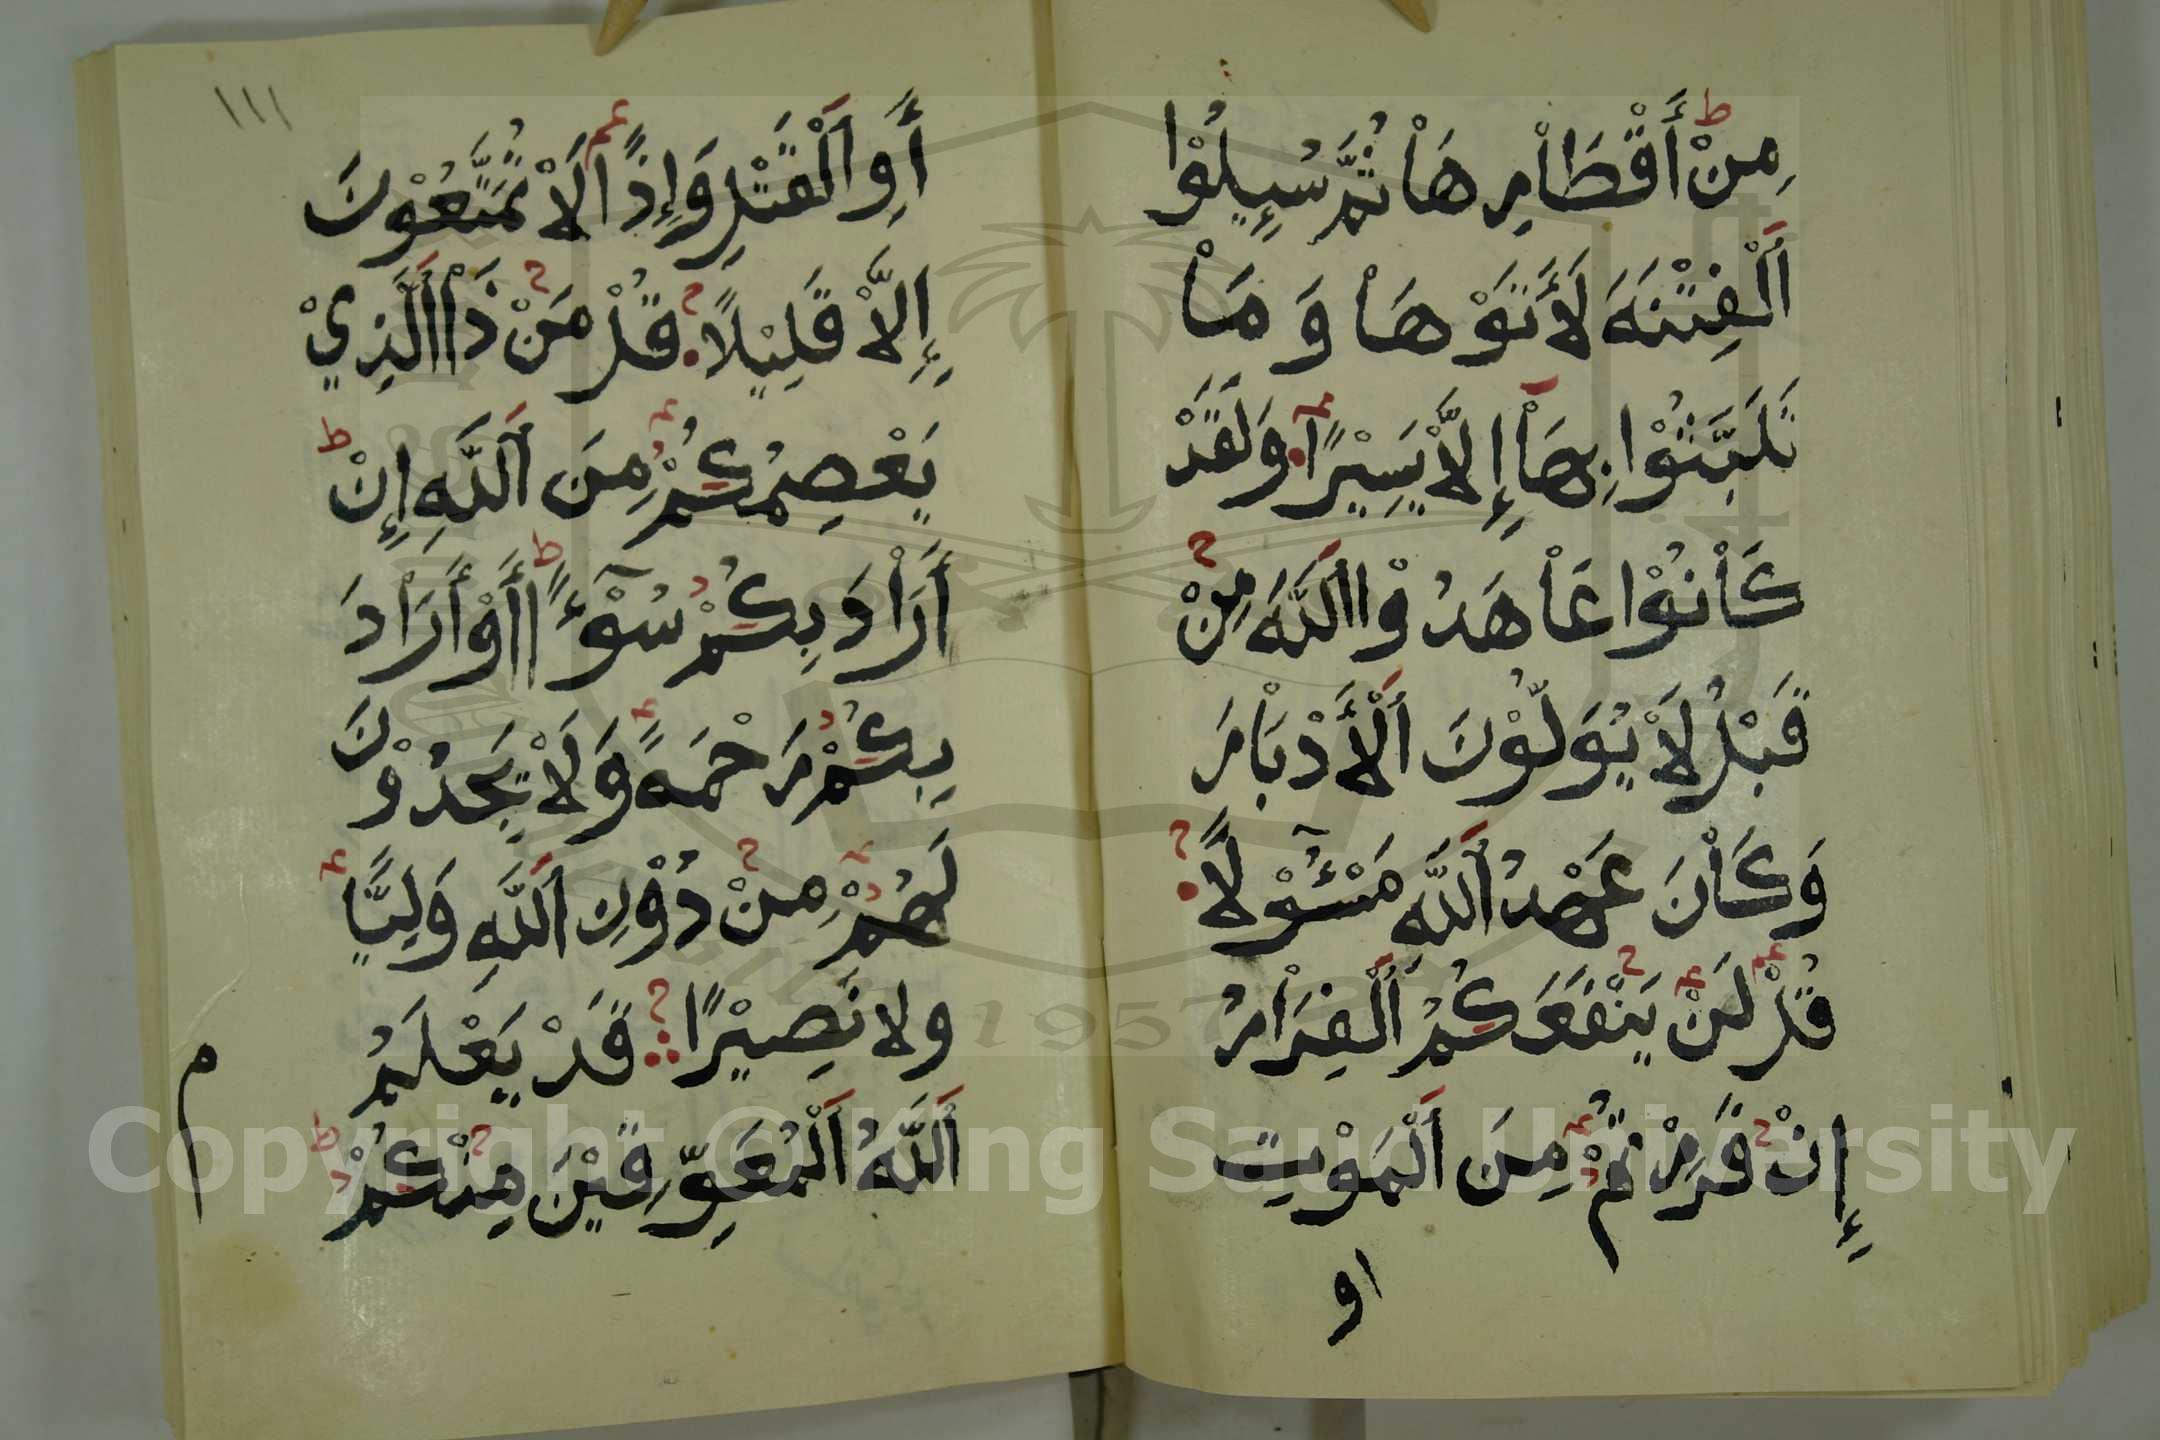 مِنْ أَقْطَاْرِهَاْ ثُمَّ سُئِلُوْا
اَلْفِتْنَةَ لَأَتَوْهَاْ وَمَاْ
تَلَبَّثُوْا بِهَاْ إِلَّاْ يَسِيْرًا وَلَقَدْ
كَاْنُوْا عَاْهَدُوْا اَللَّهَ مِنْ
قَبْلُ لَاْ يُوَلُّوْنَ اَلْأَدْبَاْرَ
وَكَاْنَ عَهْدُ اَللَّهِ مَسْئُوْلًا
قُلْ لَنْ يَنْفَعَكُمُ اَلْفِرَاْرُ
إِنْ فَرَرْتُمْ مِنَ اَلْمَوْتِ
او
١١١
أَوِ اَلْقَتْلِ وَإِذًا لَاْ تُمَتَّعُوْنَ
إِلَّاْ قَلِيْلًا قُلْ مَنْ ذَاْ اَلَّذِيْ
يَعْصِمُكُمْ مِنَ اَللَّهِ إِنْ
أَرَاْدَ بِكُمْ سُوْٓءًا أَوْ أَرَاْدَ
بِكُمْ رَحْمَةً وَلَاْ يَجِدُوْنَ
لَهُمْ مِنْ دُوْنِ اَللَّهِ وَلِيًّا
ولا نَصِيْرًا قَدْ يَعْلَمُ
اَللَّهُ اَلْمُعَوِّقِيْنَ مِنْكُمْ
م
1957
Copyright © King Saud University